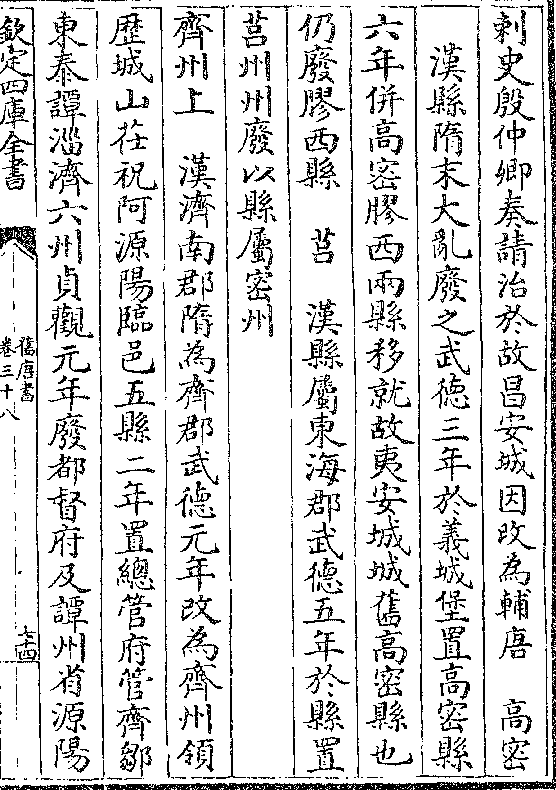 刺史殷仲卿奏請治於故昌安城因改為輔唐　高密
漢縣隋末大亂廢之武德三年於義城堡置高密縣
六年併高密膠西兩縣移就故夷安城城舊高密縣也
仍廢膠西縣　莒　漢縣屬東海郡武德五年於縣置
莒州州廢以縣屬密州
齊州上　漢濟南郡隋為齊郡武德元年改為齊州領
歷城山茌祝阿源陽臨邑五縣二年置總管府管齊鄒
東泰譚淄濟六州貞觀元年廢都督府及譚州省源陽
欽定四庫全書
舊唐書
卷三十八
七十四